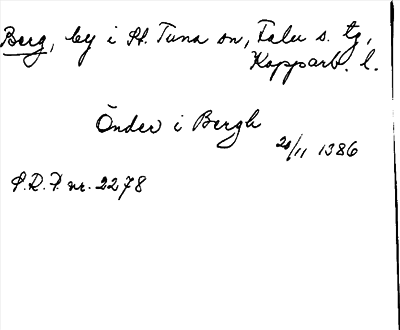 Berg, by i St. Tuna sn, Falu s. tg,
Kopparb. l.
Önder i Bergh
20/11 1386
S.R.P. nr. 2278